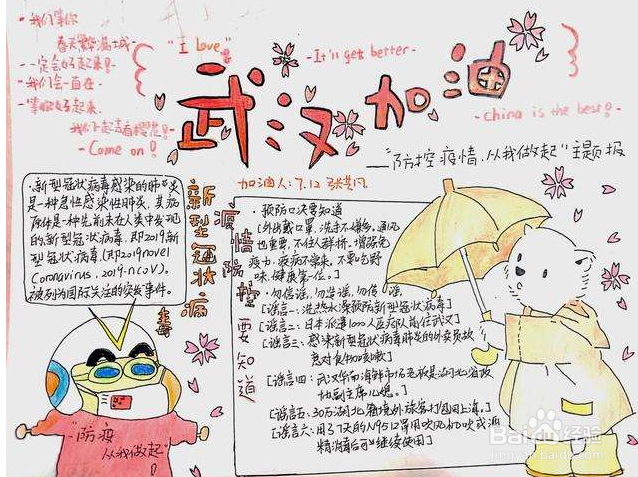 - 我们等你
春天繁华满城
- 一定会好起来!
- 我们会一直在
- 掌你好起来
- Come on!
"I Love"
- It'll get better -
武汉加油
- China is the best! -
"防控疫情.从我做起"主题报
加油人:7.12
·新型冠状病毒感染的肺炎
是一种急性感染性肺炎,其病
原体是一种先前未在人类中发现
的新型冠状病毒,即2019新
型冠状病毒(即2019novel
Coronavirus.2019-nCoV).
被列为国际关注的突发事件。
新型冠状病毒
疫情防控要知道
·预防口决要知道
[外出戴口罩,洗手不嫌多,通风
也重要,不住人群挤,增强免
疫力,疾病不靠来,不要吃野
味,健康第一位。]
·勿信谣,勿造谣,勿传谣
[谣言一:洗热水澡预防新型冠状病毒]
[谣言二:日本派遣1000人医疗队前往武汉]
[谣言三:感染新型冠状病毒肺炎的外卖员故
意对食物咳嗽]
[谣言四:武汉华南海鲜市场老板是湖北省政
协副主席儿媳。]
[谣言五:30万湖北籍境外旅客打包回上海。]
[谣言六:用了1天的N95口罩用吹风机吹或酒
精消毒后可继续使用]
"防疫
从我做起"!
Baidu经验
jingyan.baidu.com